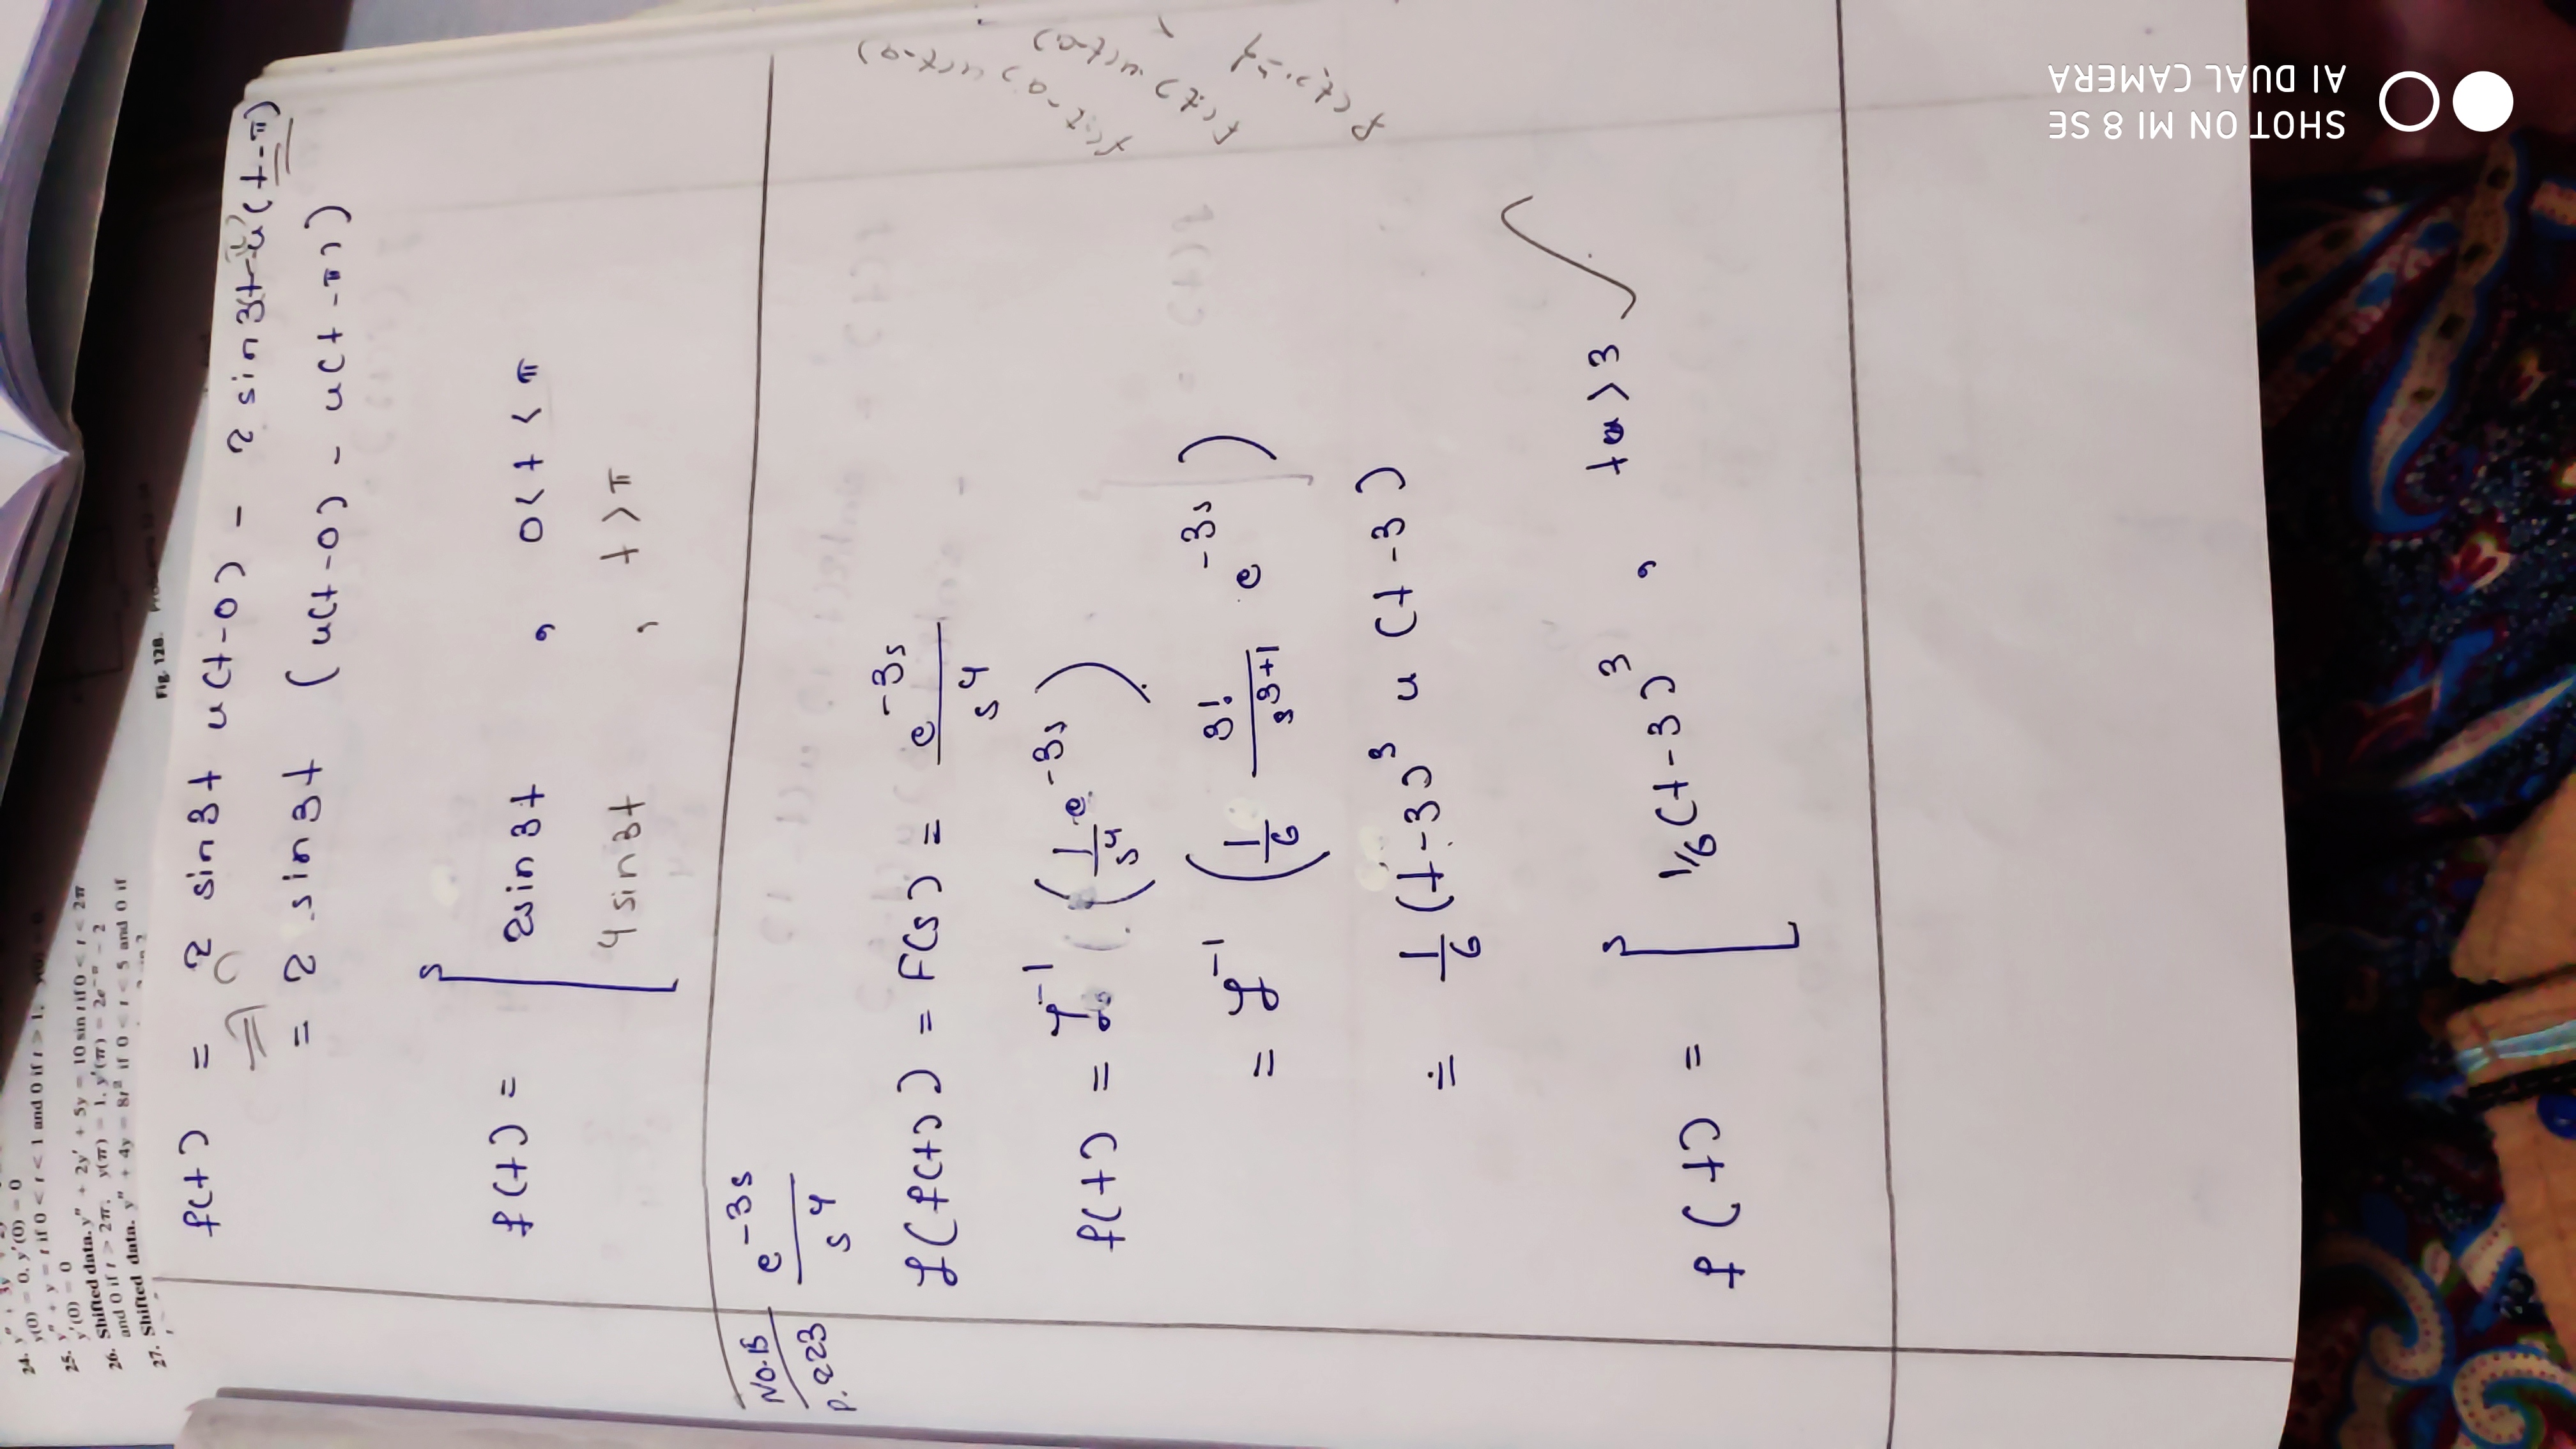 24. y" + 3y
y(0) = 0, y'(0) = 0
25. y" + y = t if 0 < t < 1 and 0 if t > 1,
y'(0) = 0
26. Shifted data. y" + 2y' + 5y = 10 sin t if 0 < t < 2π
and 0 if t > 2π, y(π) = 1, y'(π) = 2e^-π - 2
27. Shifted data. y" + 4y = 8t² if 0 < t < 5 and 0 if
Fig. 128.
f(t) = 2 sin3t u(t-0) - 2 sin3t u(t-π)
= 2 sin3t (u(t-0) - u(t-π))
f(t) = 2sin3t , 0<t<π
4sin3t , t>π
No.15
P.223
e^-3s / s^4
ℒ(f(t)) = F(s) = e^-3s / s^4
f(t) = ℒ^-1 (1/s^4 e^-3s)
= ℒ^-1 (1/6 3!/s^3+1 e^-3s)
= 1/6 (t-3)^3 u(t-3)
f(t) = 1/6(t-3)^3 , t>3
SHOT ON MI 8 SE
AI DUAL CAMERA